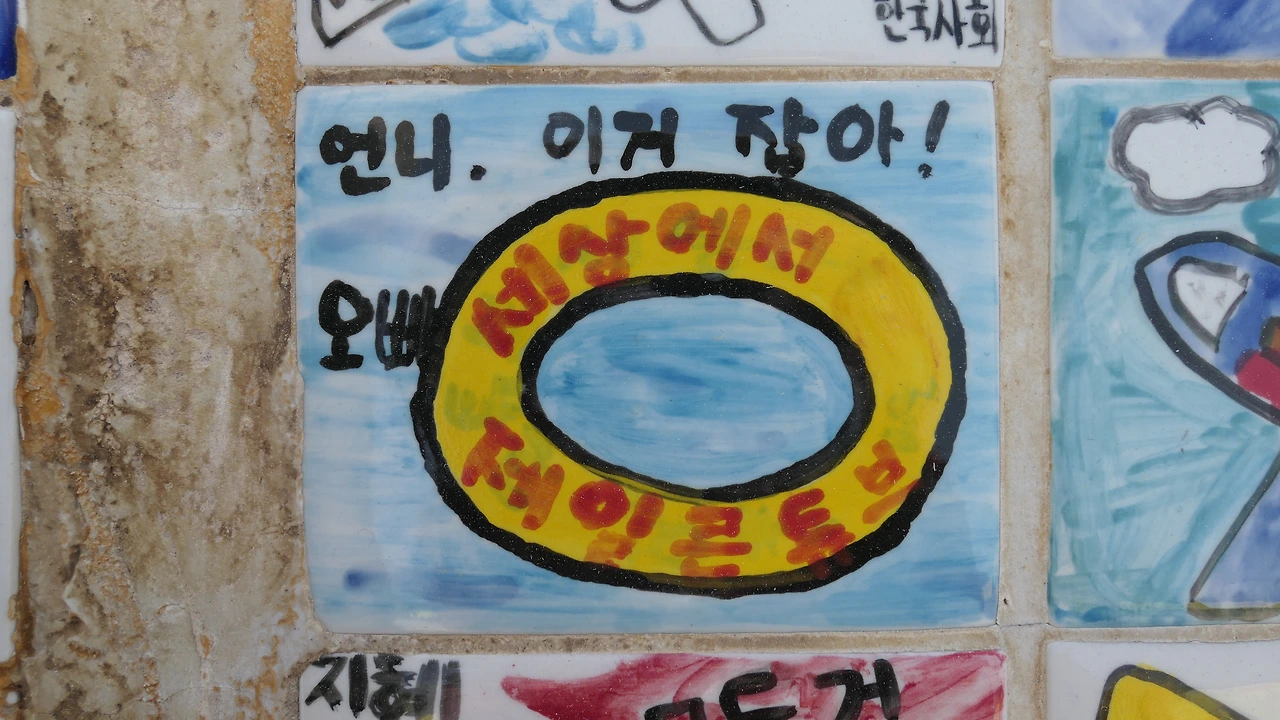 한국사회
언니. 이거 잡아!
오빠
세상에서
제일큰튜브
지혜